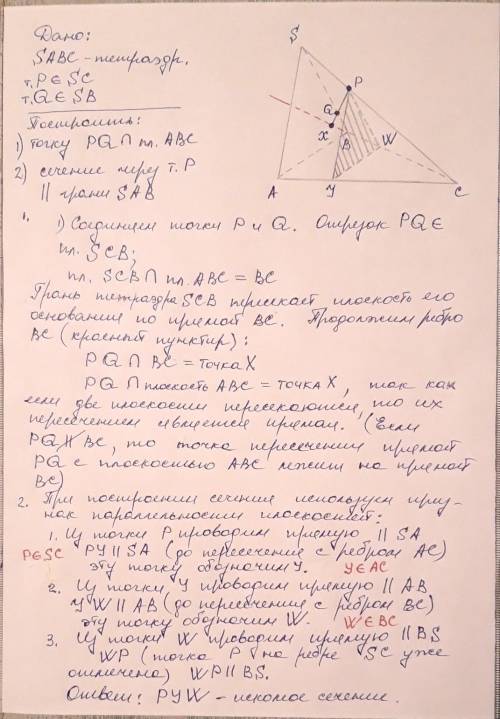 Дано:
SABC - тетраэдр.
т. P ∈ SC
т. Q ∈ SB
Построить:
1) точку PQ ∩ пл. ABC
2) сечение через т. P
|| грани SAB
S
P
Q
X
B
W
A
Y
C
1.
1) Соединяем точки P и Q. Отрезок PQ ∈
пл. SCB;
пл. SCB ∩ пл. ABC = BC
Грань тетраэдра SCB пересекает плоскость его
основания по прямой BC. Продолжим ребро
BC (красный пунктир):
PQ ∩ BC = точка X
PQ ∩ плоскость ABC = точка X, так как
если две плоскости пересекаются, то их
пересечением является прямая. (Если
PQ ∦ BC, то точка пересечения прямой
PQ с плоскостью ABC лежит на прямой
BC)
2. При построении сечения используем приз-
нак параллельности плоскостей:
1. Из точки P проводим прямую || SA
P∈SC PY || SA (до пересечения с ребром AC)
эту точку обозначим Y. Y∈AC
2. Из точки Y проводим прямую || AB
YW || AB (до пересечения с ребром BC)
эту точку обозначим W. W∈BC
3. Из точки W проводим прямую || BS
WP (точка P на ребре SC уже
отмечена) WP || BS.
Ответ: PYW - искомое сечение.